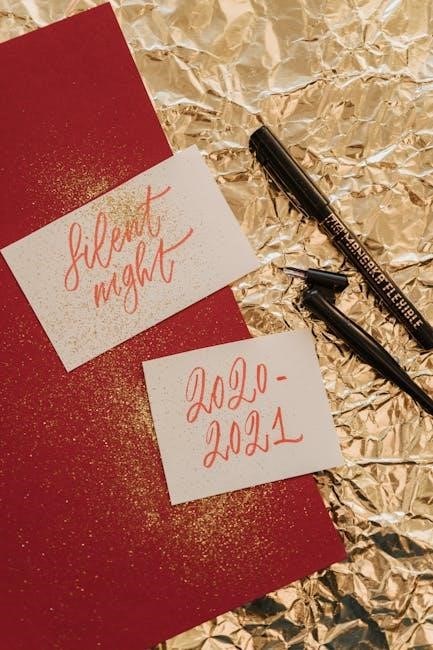 Silent
night
2020-
2021
MANGAKA FLEXIBLE